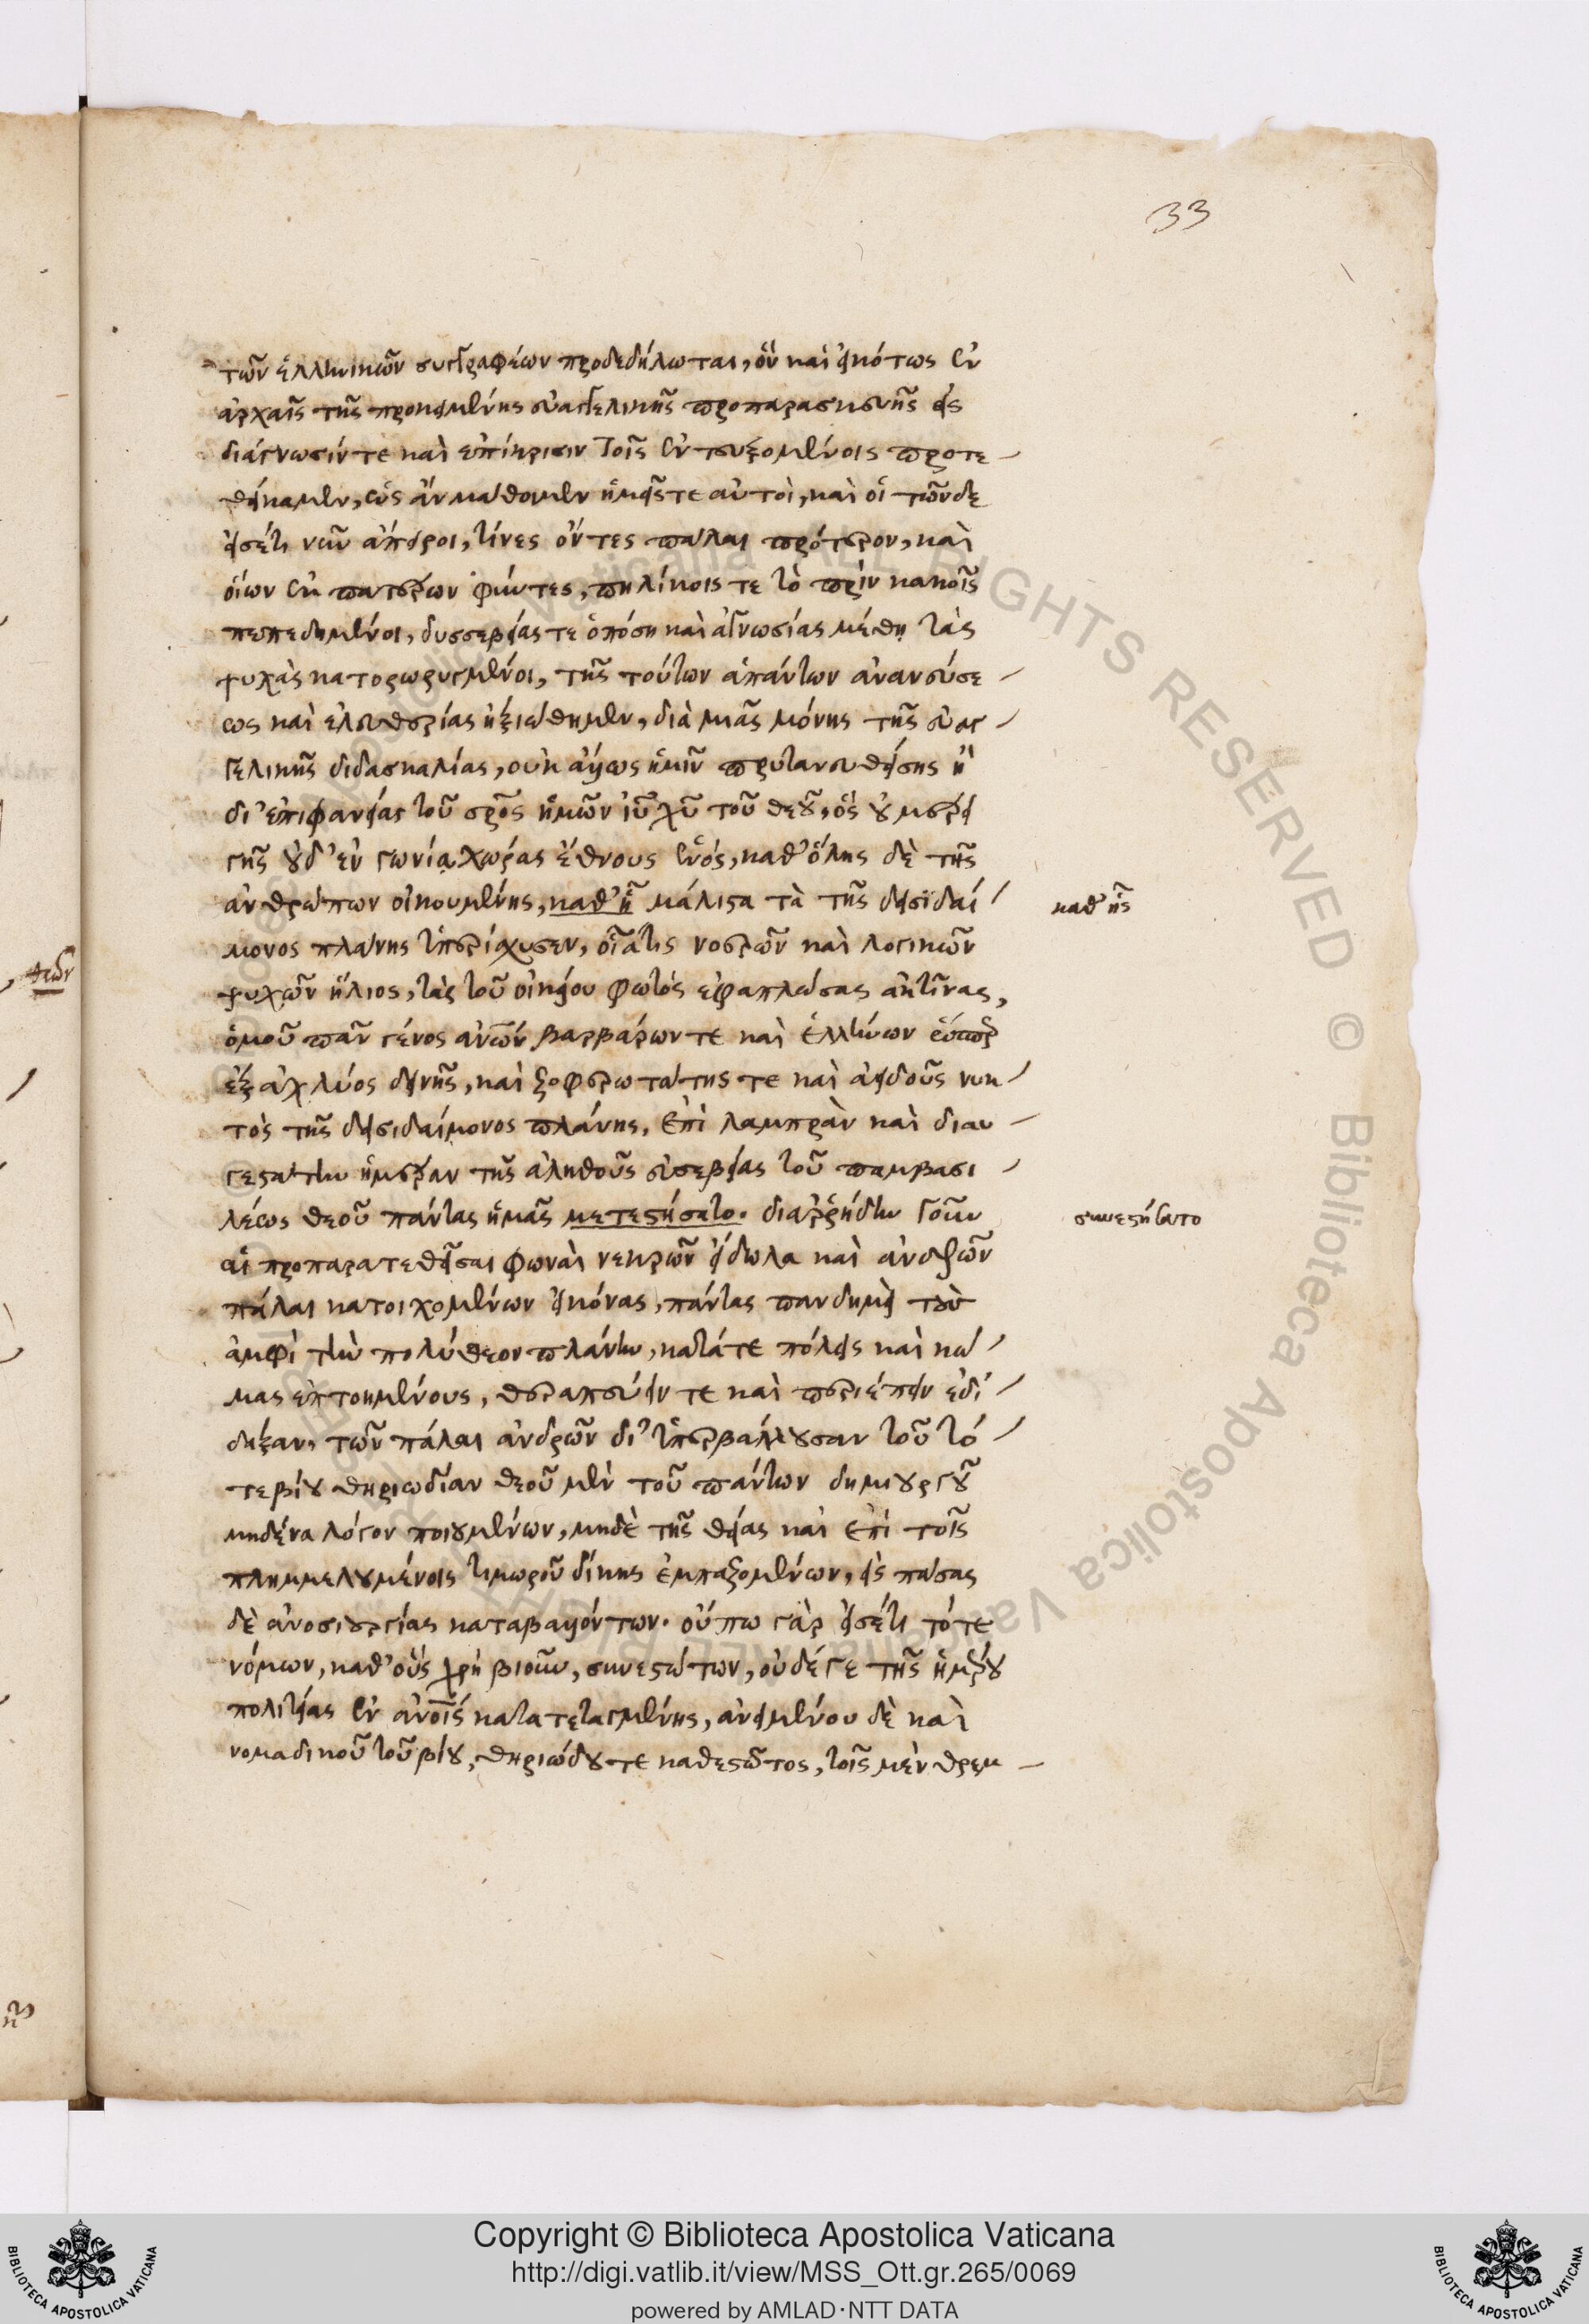 33
τῶν ἑλληνικῶν συγγραφέων προδεδήλωται, ὃν καὶ εἰκότως ἐν
ἀρχαῖς τῆς προκειμένης εὐαγγελικῆς προπαρασκευῆς εἰς
διάγνωσίν τε καὶ ἐπίκρισιν τοῖς ἐντευξομένοις προτε
θείκαμεν, ὡς ἂν μάθοιμεν ἡμεῖς τε αὐτοὶ, καὶ οἱ τῶνδε
εἰσέτι νῦν ἄπειροι, τίνες ὄντες πάλαι πρότερον, καὶ
οἵων ἐκ πατέρων φύντες, πηλίκοις τε τὸ πρὶν κακοῖς
πεπεδημένοι, δυσσεβείας τε ὁπόσῃ καὶ ἀγνωσίας μέθῃ τὰς
ψυχὰς κατορωρυγμένοι, τῆς τούτων ἁπάντων ἀνανεύσε
ως καὶ ἐλευθερίας ἠξιώθημεν, διὰ μιᾶς μόνης τῆς εὐαγ
γελικῆς διδασκαλίας, οὐκ ἄλλως ἡμῖν πρυτανευθείσης ἢ
δι' ἐπιφανείας τοῦ σρ̅ος ἡμῶν ἰυ̅ χυ̅ τοῦ θεοῦ, ὃς οὐ μέρει
γῆς οὐδ' ἐν γωνίᾳ χώρας ἔθνους ἑνὸς, καθ' ὅλης δὲ τῆς
ἀνθρώπων οἰκουμένης, καθ' ἣ μάλιστα τὰ τῆς δεισιδαί
καθ' ἧς
μονος πλάνης ὑπερίσχυσεν, οἷά τις νοερῶν καὶ λογικῶν
ψυχῶν ἥλιος, τὰς τοῦ οἰκείου φωτὸς ἐφαπλώσας ἀκτῖνας,
ὁμοῦ πᾶν γένος ἀν̅ων βαρβάρων τε καὶ ἑλλήνων ὥσπερ
ἐξ ἀχλύος δεινῆς, καὶ ζοφερωτάτης τε καὶ ἀειδοῦς νυκ
τὸς τῆς δεισιδαίμονος πλάνης, ἐπὶ λαμπρὰν καὶ διαυ
γεστάτην ἡμέραν τῆς ἀληθοῦς εὐσεβείας τοῦ παμβασι
λέως θεοῦ πάντας ἡμᾶς μετεστήσατο. διαῤῥήδην γοῦν
συνεστήσατο
αἱ προπαρατεθεῖσαι φωναὶ νεκρῶν εἴδωλα καὶ ἀνδρῶν
πάλαι κατοιχομένων εἰκόνας, πάντας πανδημεὶ τοὺς
ἀμφὶ τὴν πολύθεον πλάνην, κατά τε πόλεις καὶ κώ
μας ἐπτοημένους, θεραπεύειν τε καὶ περιέπειν ἐδί
δηξαν, τῶν πάλαι ἀνδρῶν δι' ὑπερβάλλουσαν τοῦ τό
τε βίου θηριωδίαν θεοῦ μὲν τοῦ πάντων δημιουργοῦ
μηδένα λόγον ποιουμένων, μηδὲ τῆς θείας καὶ ἐπὶ τοῖς
πλημμελουμένοις τιμωροῦ δίκης ἐμπαζομένων, εἰς πάσας
δὲ ἀνοσιουργίας καταβαλλόντων. οὔπω γὰρ εἰσέτι τότε
νόμων, καθ' οὓς χρὴ βιοῦν, συνεστώτων, οὐδέ γε τῆς ἡμέρου
πολιτείας ἐν ἀν̅οις κατατεταγμένης, ἀνειμένου δὲ καὶ
νομαδικοῦ τοῦ βίου, θηριώδους τε καθεστῶτος, τοῖς μὲν θρεμ
Copyright © Biblioteca Apostolica Vaticana
http://digi.vatlib.it/view/MSS_Ott.gr.265/0069
powered by AMLAD·NTT DATA